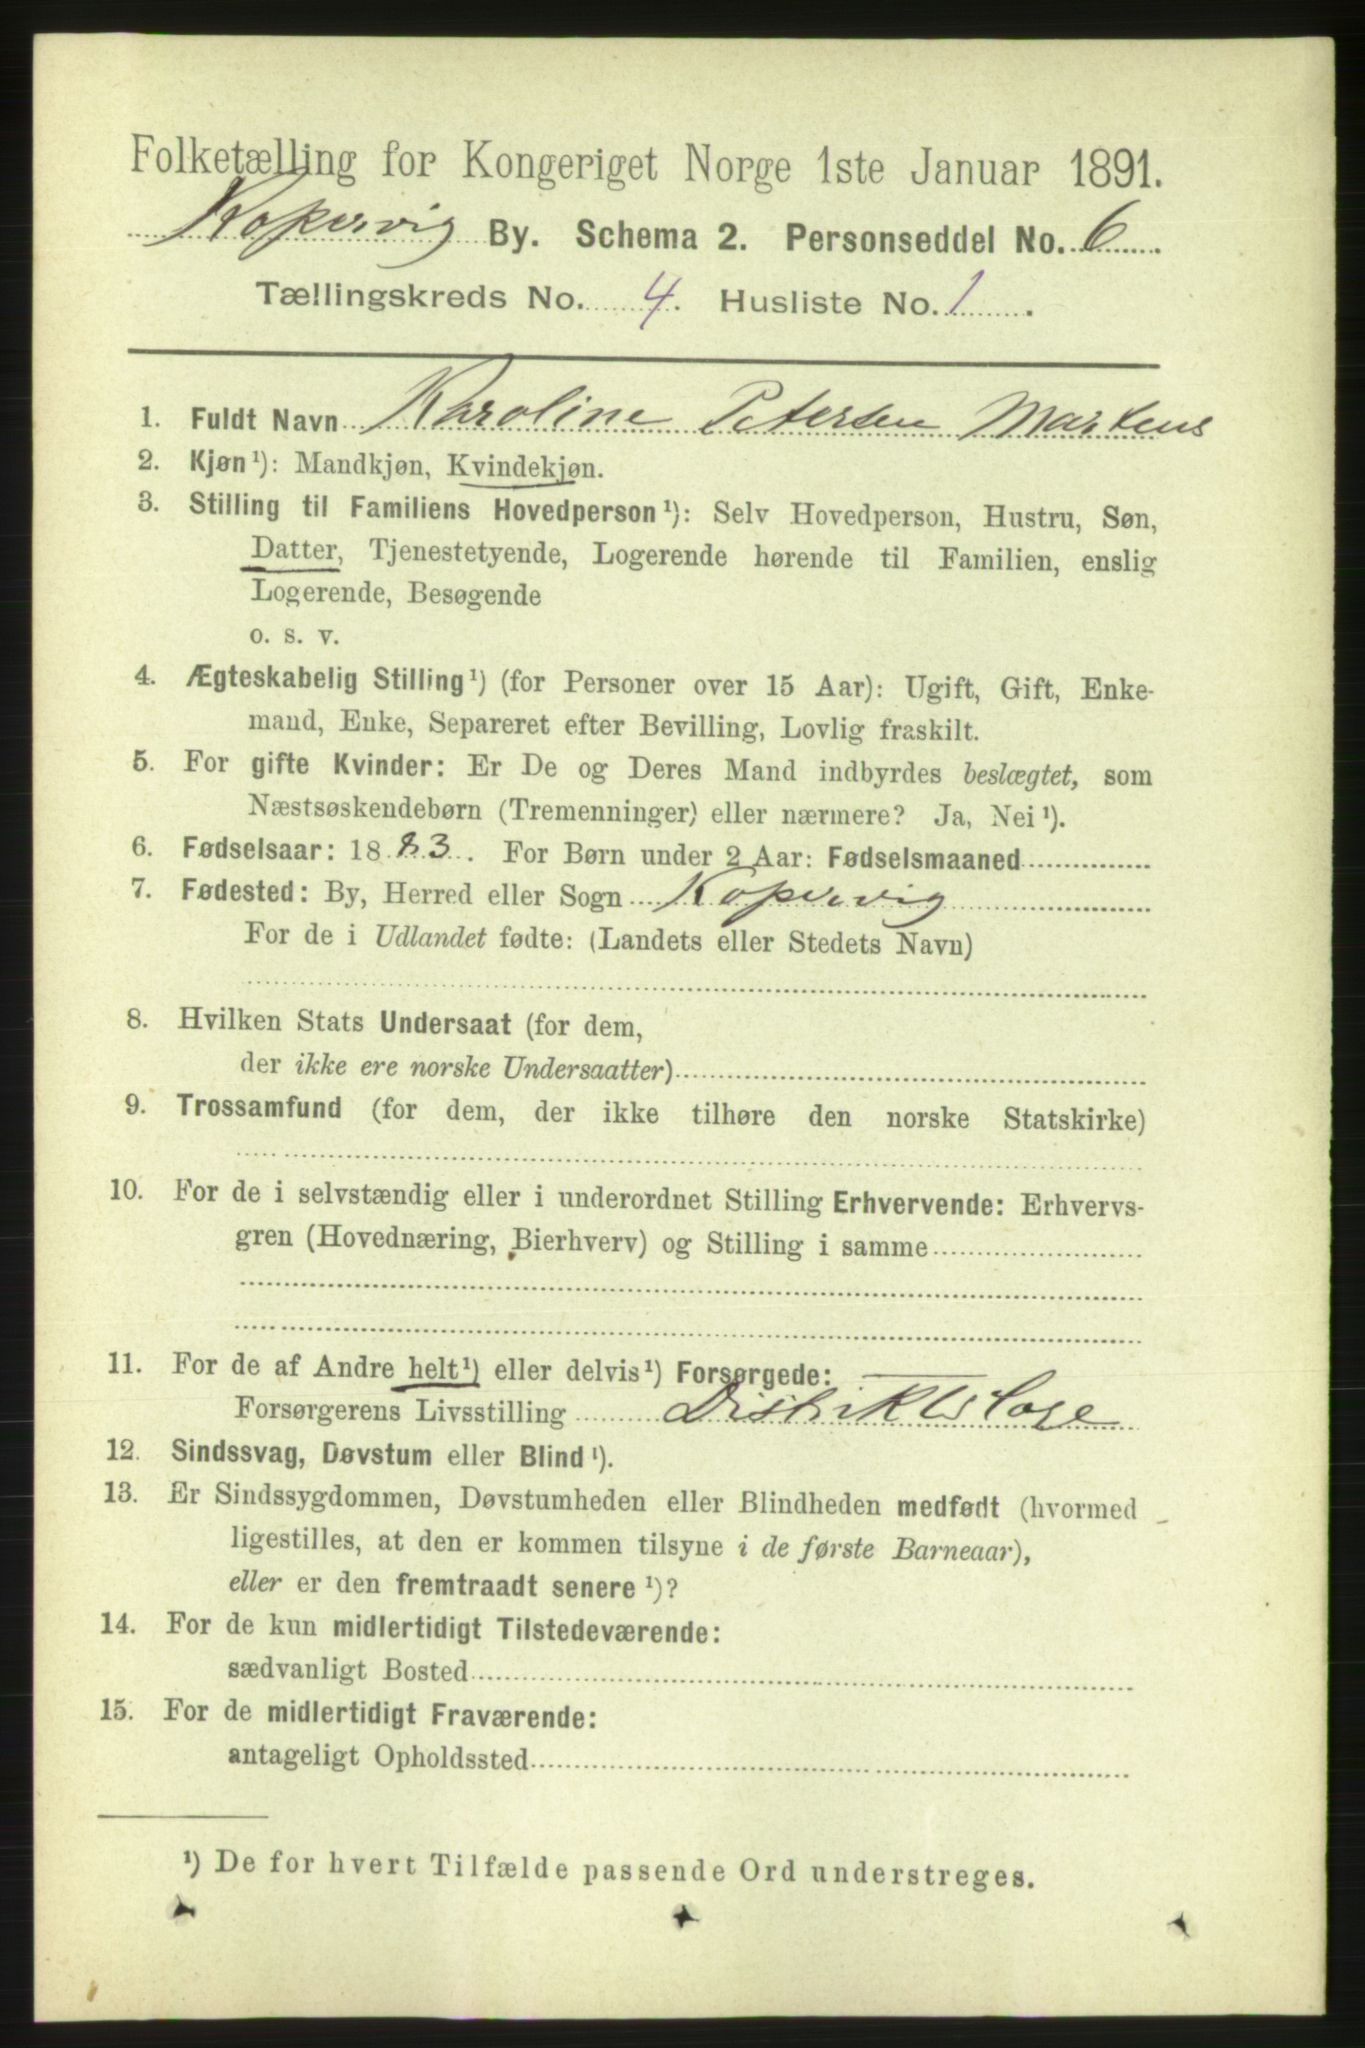 Folketælling for Kongeriget Norge 1ste Januar 1891.
Kopervig By. Schema 2. Personseddel No. 6.
Tællingskreds No. 4. Husliste No. 1.
1. Fuldt Navn Karoline Petersen Martens
2. Kjøn ¹): Mandkjøn, Kvindekjøn.
3. Stilling til Familiens Hovedperson ¹): Selv Hovedperson, Hustru, Søn,
Datter, Tjenestetyende, Logerende hørende til Familien, enslig
Logerende, Besøgende
o. s. v.
4. Ægteskabelig Stilling ¹) (for Personer over 15 Aar): Ugift, Gift, Enke-
mand, Enke, Separeret efter Bevilling, Lovlig fraskilt.
5. For gifte Kvinder: Er De og Deres Mand indbyrdes beslægtet, som
Næstsøskendebørn (Tremenninger) eller nærmere? Ja, Nei ¹).
6. Fødselsaar: 1883. For Børn under 2 Aar: Fødselsmaaned
7. Fødested: By, Herred eller Sogn Kopervig
For de i Udlandet fødte: (Landets eller Stedets Navn)
8. Hvilken Stats Undersaat (for dem,
der ikke ere norske Undersaatter)
9. Trossamfund (for dem, der ikke tilhøre den norske Statskirke)
10. For de i selvstændig eller i underordnet Stilling Erhvervende: Erhvervs-
gren (Hovednæring, Bierhverv) og Stilling i samme
11. For de af Andre helt ¹) eller delvis ¹) Forsørgede:
Forsørgerens Livsstilling Distriktslæge
12. Sindssvag, Døvstum eller Blind ¹).
13. Er Sindssygdommen, Døvstumheden eller Blindheden medfødt (hvormed
ligestilles, at den er kommen tilsyne i de første Barneaar),
eller er den fremtraadt senere ¹)?
14. For de kun midlertidigt Tilstedeværende:
sædvanligt Bosted
15. For de midlertidigt Fraværende:
antageligt Opholdssted
¹) De for hvert Tilfælde passende Ord understreges.